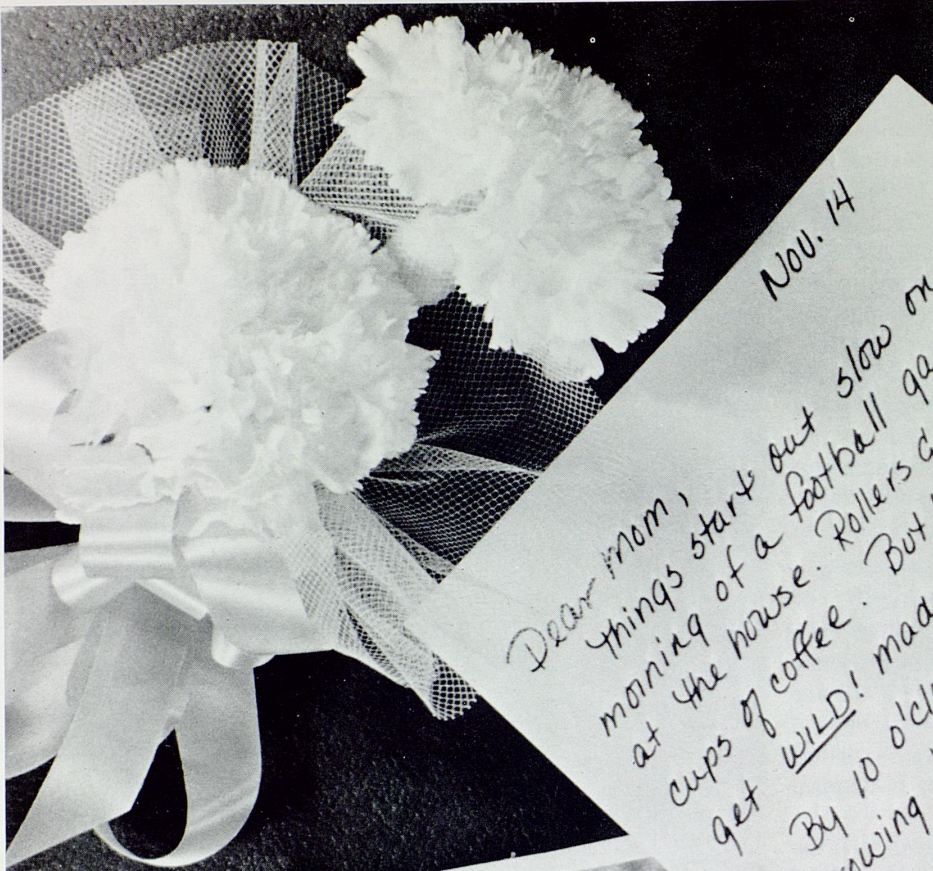 Nov. 14
Dear mom,
things start out slow on
morning of a football ga
at the house. Rollers &
cups of coffee. But
get WILD! mad
By 10 o'cl
owing